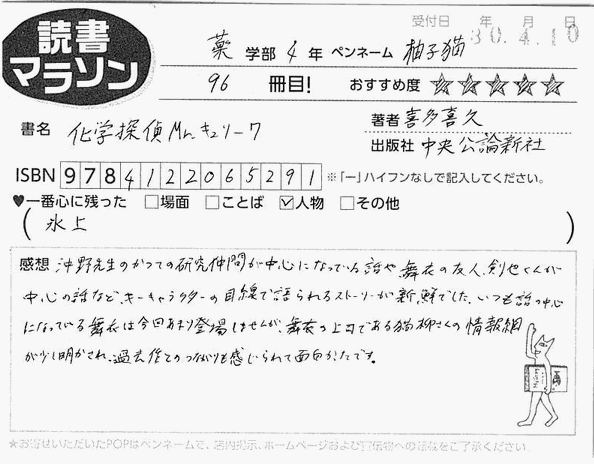 読書
マラソン
受付日 年 月 日
30.4.10
薬 学部 4 年 ペンネーム 柚子猫
96 冊目! おすすめ度 ☆☆☆☆☆
書名 化学探偵Mr.キュリー7
著者 喜多喜久
出版社 中央公論新社
ISBN 9784122065291 ※「ー」ハイフンなしで記入してください。
♥一番心に残った □場面 □ことば ☑人物 □その他
( 氷上 )
感想 沖野先生のかつての研究仲間が中心になっている話や舞衣の友人、剣也くんが
中心の話など、キーキャラクターの目線で語られるストーリーが新鮮でした。いつも話の中心
になっている舞衣は今回あまり登場しませんが、舞衣の上司である猫柳さんの情報網
が少し明かされ、過去作とのつながりも感じられて面白かったです。
★お寄せいただいたPOPはペンネームで、店内掲示、ホームページおよび宣伝物への掲載をご了承ください。